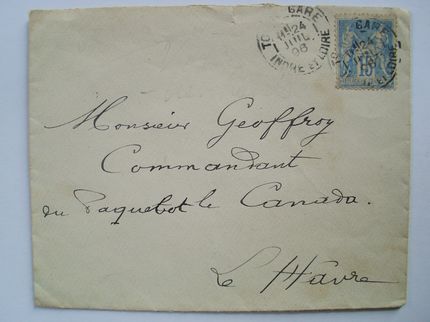 GARE
24
JUIL.
96
INDRE ET LOIRE
GARE
24
15
ET LOIRE
Monsieur Geoffroy
Commandant
du Paquebot le Canada.
Le Hâvre